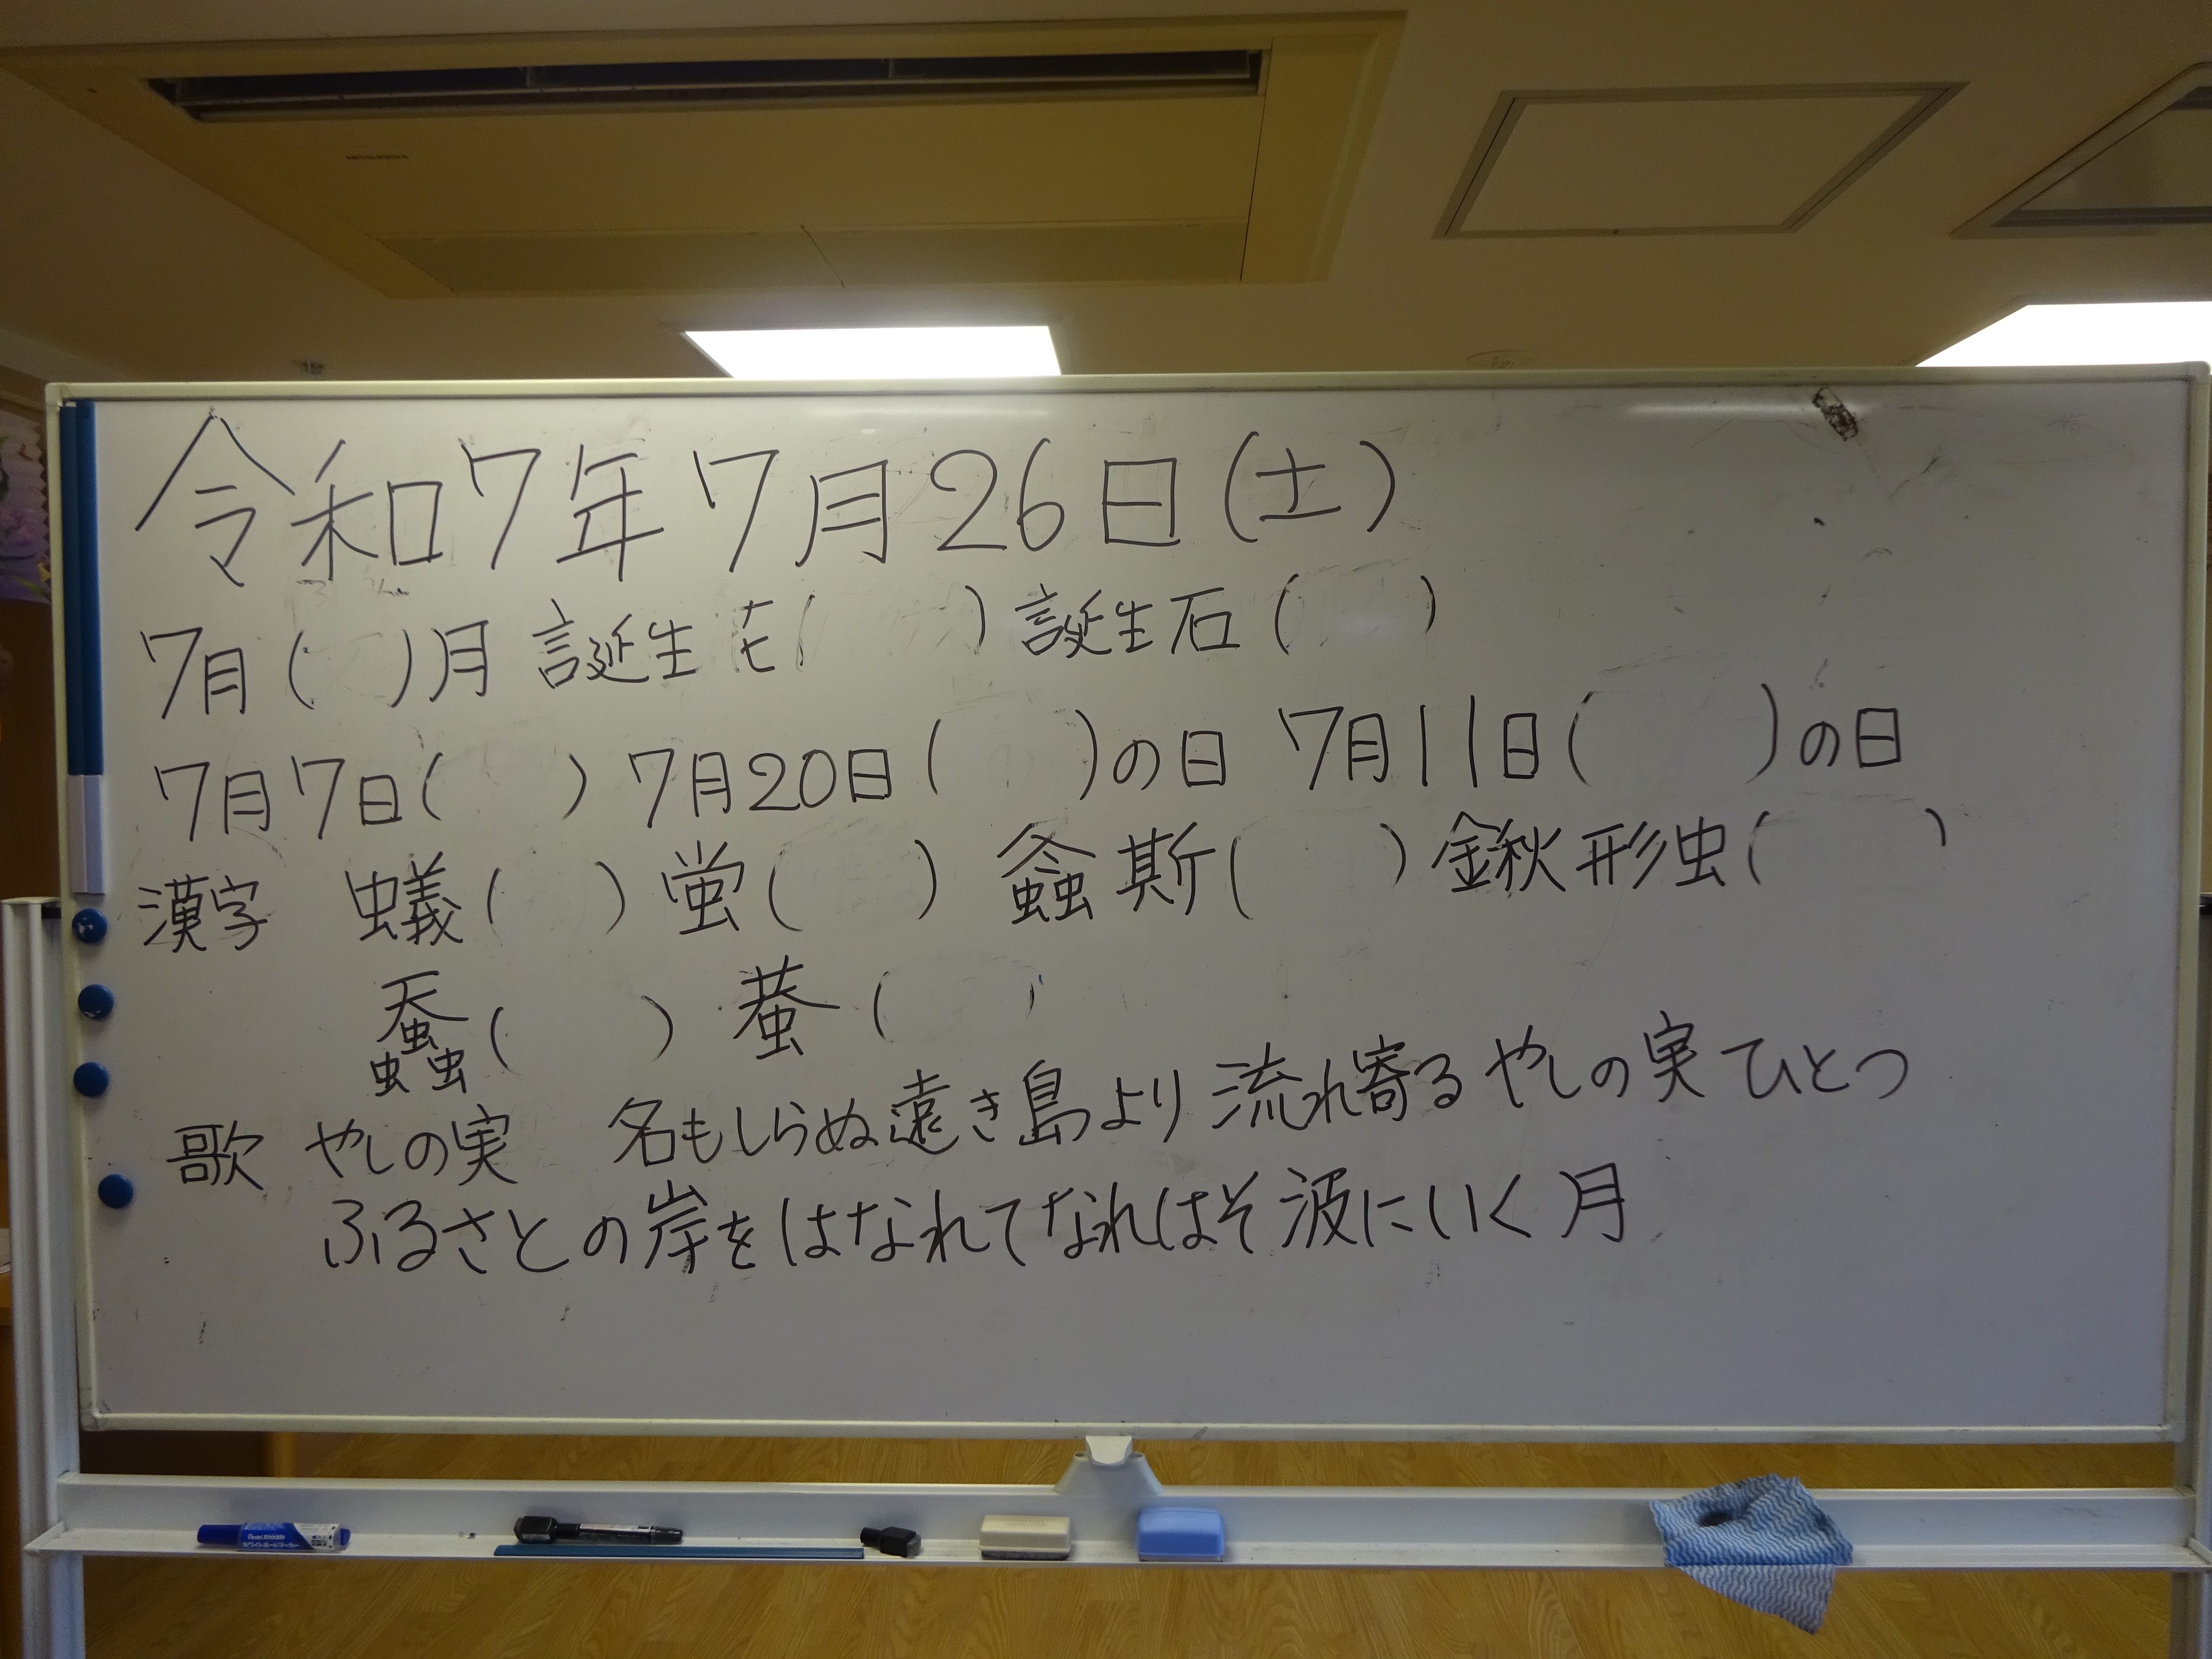 令和7年7月26日(土)
7月(　)月 誕生花(　) 誕生石(　)
7月7日(　) 7月20日(　)の日 7月11日(　)の日
漢字 蟻(　) 蛍(　) 螽斯(　) 鍬形虫(　)
蚕(　) 蛬(　)
歌 やしの実 名もしらぬ遠き島より流れ寄るやしの実ひとつ
ふるさとの岸をはなれてなれはそ波にいく月